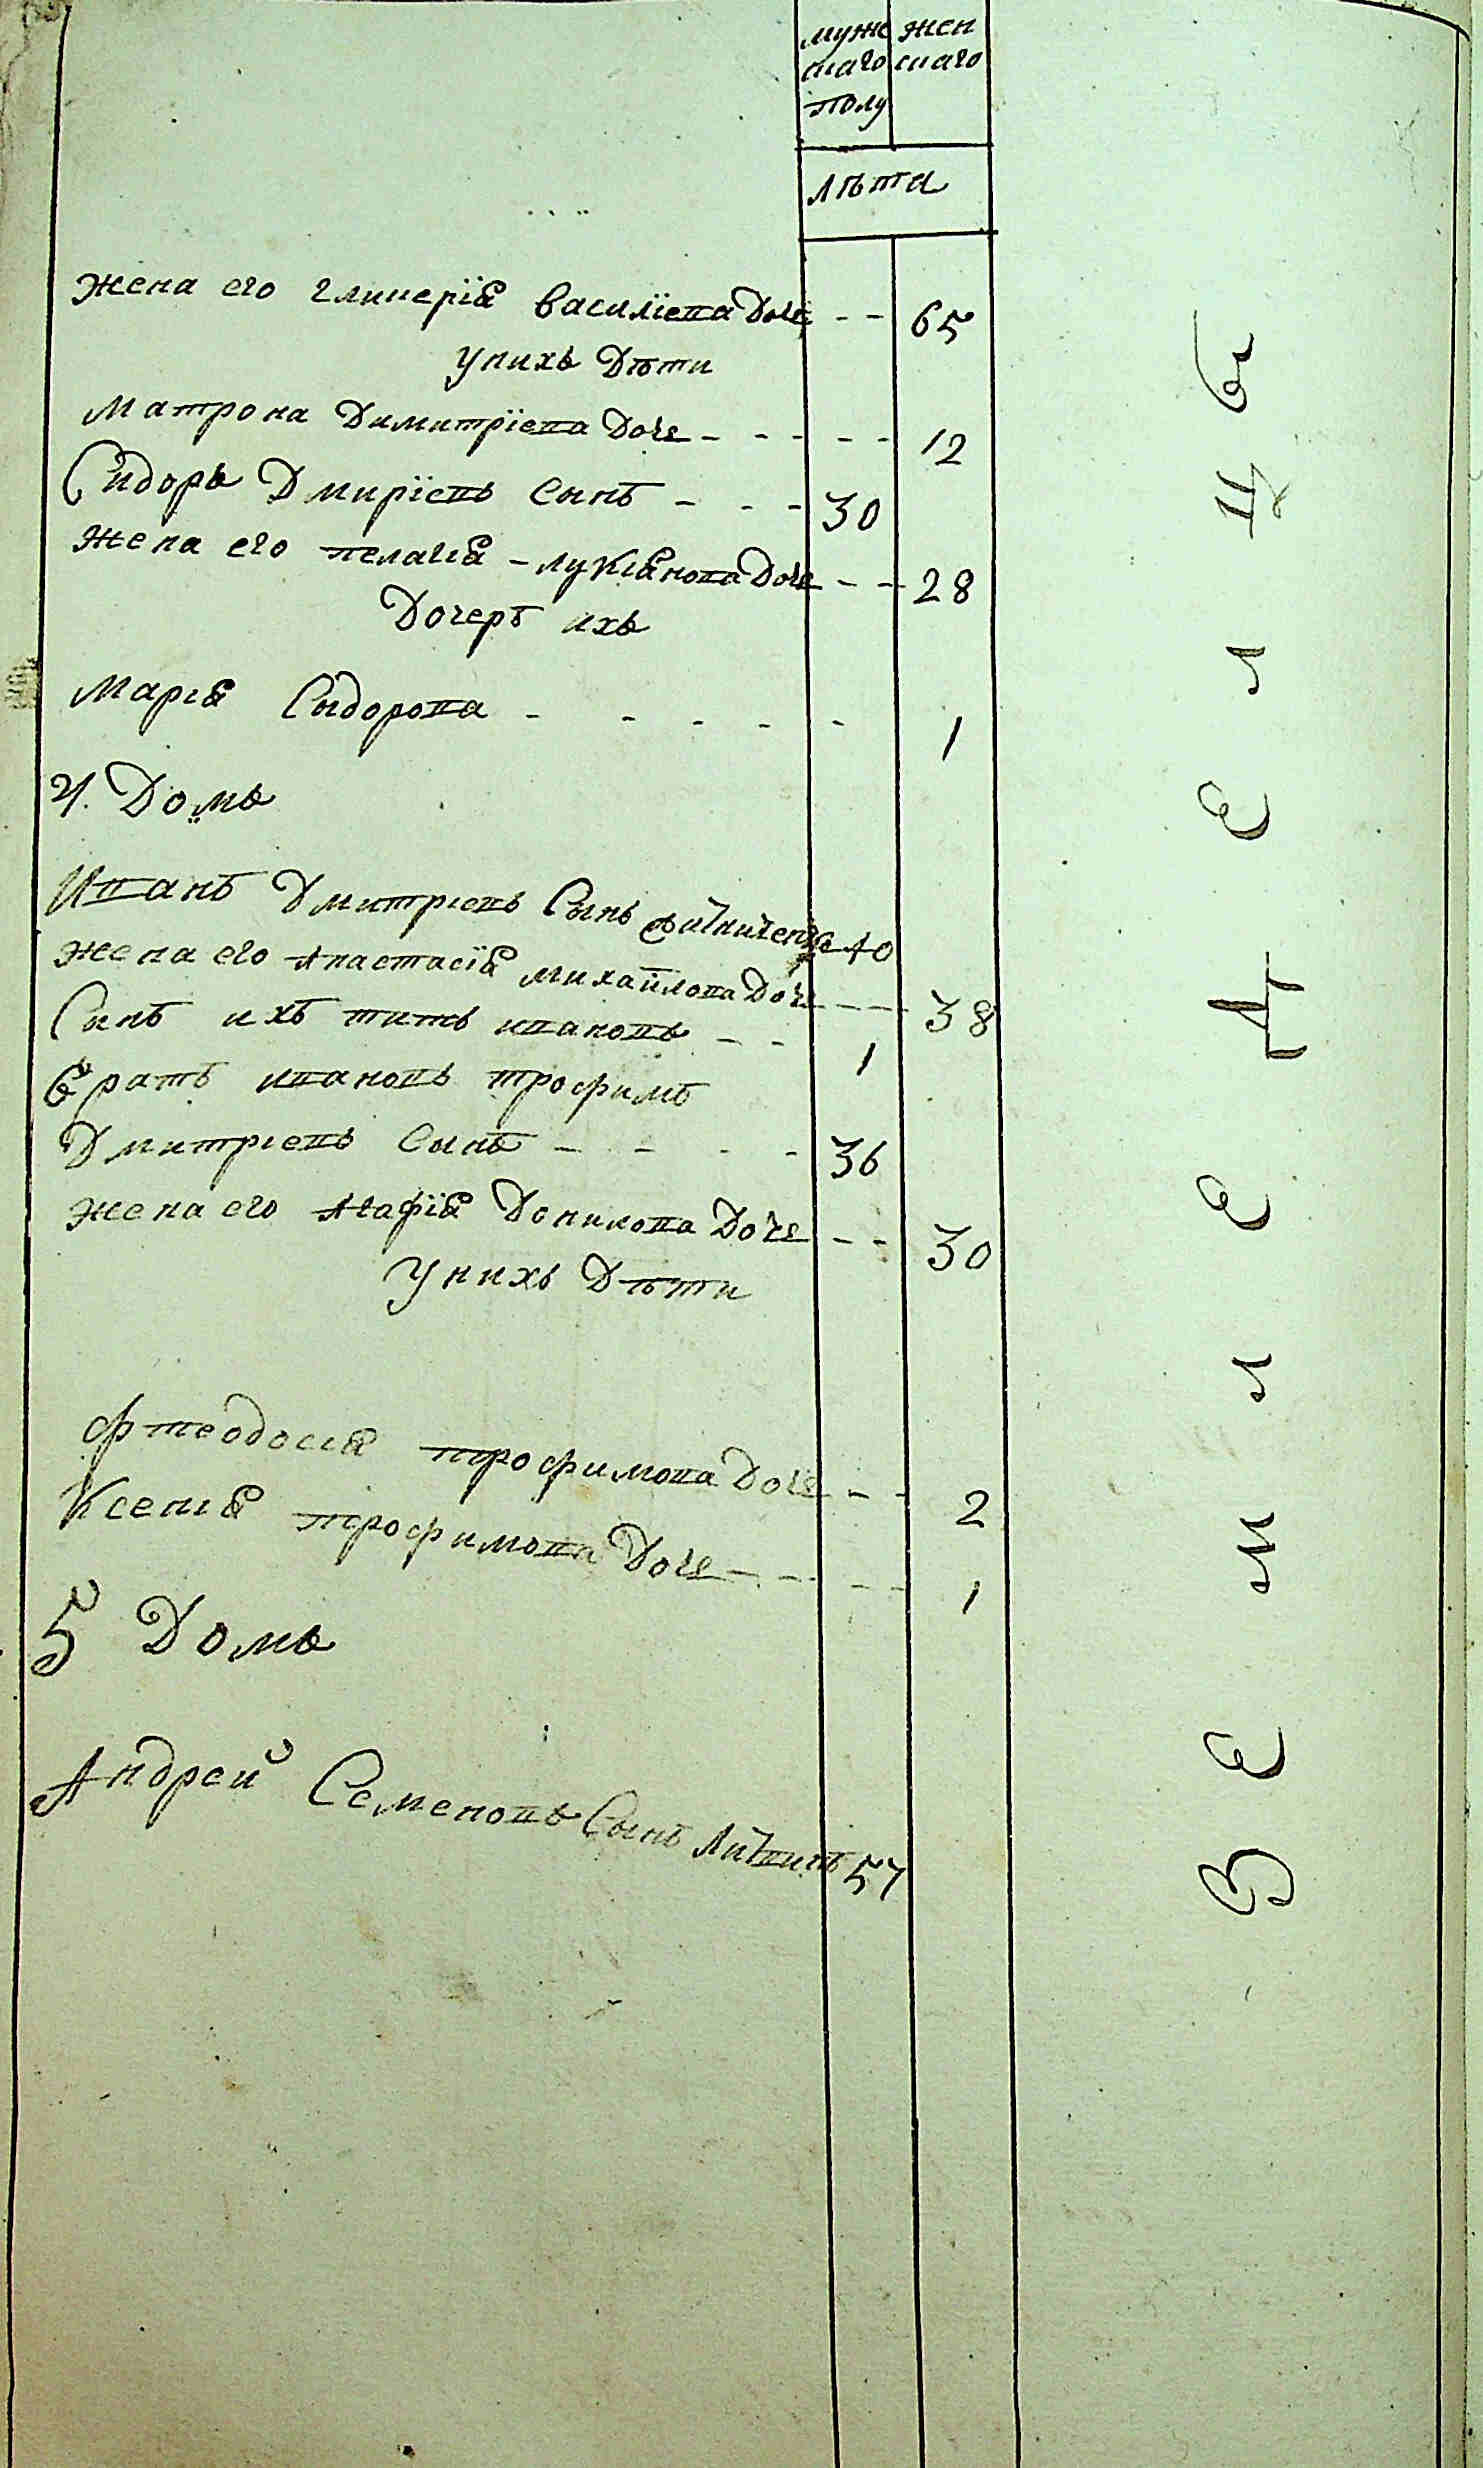 муже жен
скаго скаго
полу
лѣта
Жена его гликерїя василїева Дочь - - 65
у нихъ Дѣти
Матрона Димитрїева Дочь - - - - - 12
Сидоръ Дмирїевъ Сынъ - - - 30
Жена его пелагія - лукіянова Дочь - - 28
Дочерь ихъ
Марія Сыдорова - - - - - 1
4. Домъ
Иванъ Дмитріевъ Сынъ 40
Жена его Анастасїя михайлова Дочь - - 38
Сынъ ихъ титъ ивановъ - - 1
Братъ ивановъ трофимъ
Дмитріевъ Сынъ - - - - 36
Жена его Агафїя Донилова Дочь - - 30
У нихъ Дѣти
Фтеодосія трофимова Дочь - - 2
Ксенія трофимова Дочь - - - - 1
5 Домъ
Андрей Семеновъ Сынъ 57
ЗЕМЛЕДЕЛЦЫ